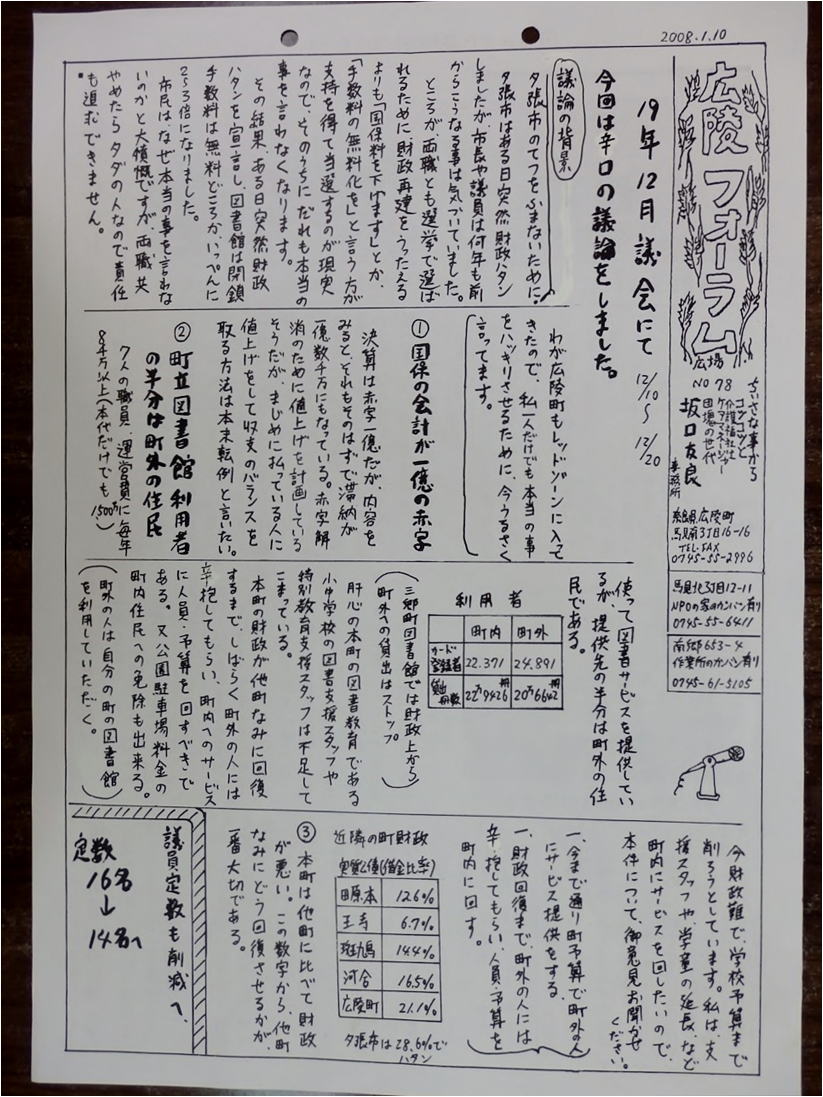 2008.1.10
広陵フォーラム
広場
NO 78
ちいさな事から
コツコツと
介護福祉士
ケアマネージャー
団塊の世代
坂口友良
事務所
奈良県広陵町
馬見南3丁目16-16
TEL・FAX
0745-55-2996
馬見北3丁目12-11
NPOの家のカンバン有り
0745-55-6411
南郷653-4
作業所のカンバン有り
0745-61-5105
19年12月議会にて
12/10
〜
12/20
今回は辛口の議論をしました。
議論の背景
夕張市のてつをふまないために。
夕張市はある日突然財政ハタン
しましたが市長や議員は何年も前
からこうなる事は気づいていました。
ところが、両職とも選挙で選ば
れるために、財政再建をうったえる
よりも「国保料を下げます」とか、
「手数料の無料化を」と言う方が
支持を得て当選するのが現実
なので、そのうちにだれも本当の
事を言わなくなります。
その結果、ある日突然財政
ハタンを宣言し、図書館は閉鎖
手数料は無料どころか、いっぺんに
2〜3倍になりました。
市民はなぜ本当の事を言わな
いのかと大憤慨ですが、両職共
やめたらタダの人なので責任
も追むできません。
わが広陵町もレッドゾーンに入って
きたので、私一人だけでも本当の事
をハッキリさせるために、今うるさく
言ってます。
① 国保の会計が一億の赤字
決算は赤字一億だが、内容を
みると、それもそのはずで滞納が
一億数千万にもなっている。赤字解
消のために値上げを計画している
そうだが、まじめに払っている人に
値上げをして収支のバランスを
取る方法は本末転倒と言いたい。
② 町立図書館利用者
の半分は町外の住民
7人の職員、運営費に毎年
8千万以上(本代だけでも1500万)
使って図書サービスを提供してい
るが、提供先の半分は町外の住
民である。
利用者
町内 町外
カード登録者 22.371 24.891
貸出冊数 22万9426冊 20万6642冊
(三郷町図書館では財政上から
町外への貸出はストップ)
肝心の本町の図書教育である
小中学校の図書支援スタッフや
特別教育支援スタッフは不足して
こまっている。
本町の財政が他町なみに回復
するまで、しばらく町外の人には
辛抱してもらい、町内へのサービス
に人員・予算を回すべきで
ある。又公園駐車場料金の
町内住民への免除も出来る。
(町外の人は自分の町の図書館
を利用していただく。)
今財政難で、学校予算まで
削ろうとしています。私は、支
援スタッフや学童の延長、など
町内にサービスを回したいので、
本件について、御意見お聞かせ
ください。
一、今まで通り町予算で町外の人
にサービス提供をする。
一、財政回復まで、町外の人には
辛抱してもらい、人員・予算を
町内に回す。
近隣の町財政
実質公債(借金比率)
田原本 12.6%
王寺 6.7%
斑鳩 14.4%
河合 16.5%
広陵町 21.1%
夕張市は28.6%で
ハタン
③ 本町は他町に比べて財政
が悪い。この数字から、他町
なみにどう回復させるかが、
一番大切である。
議員定数も削減へ、
定数
16名
↓
14名へ